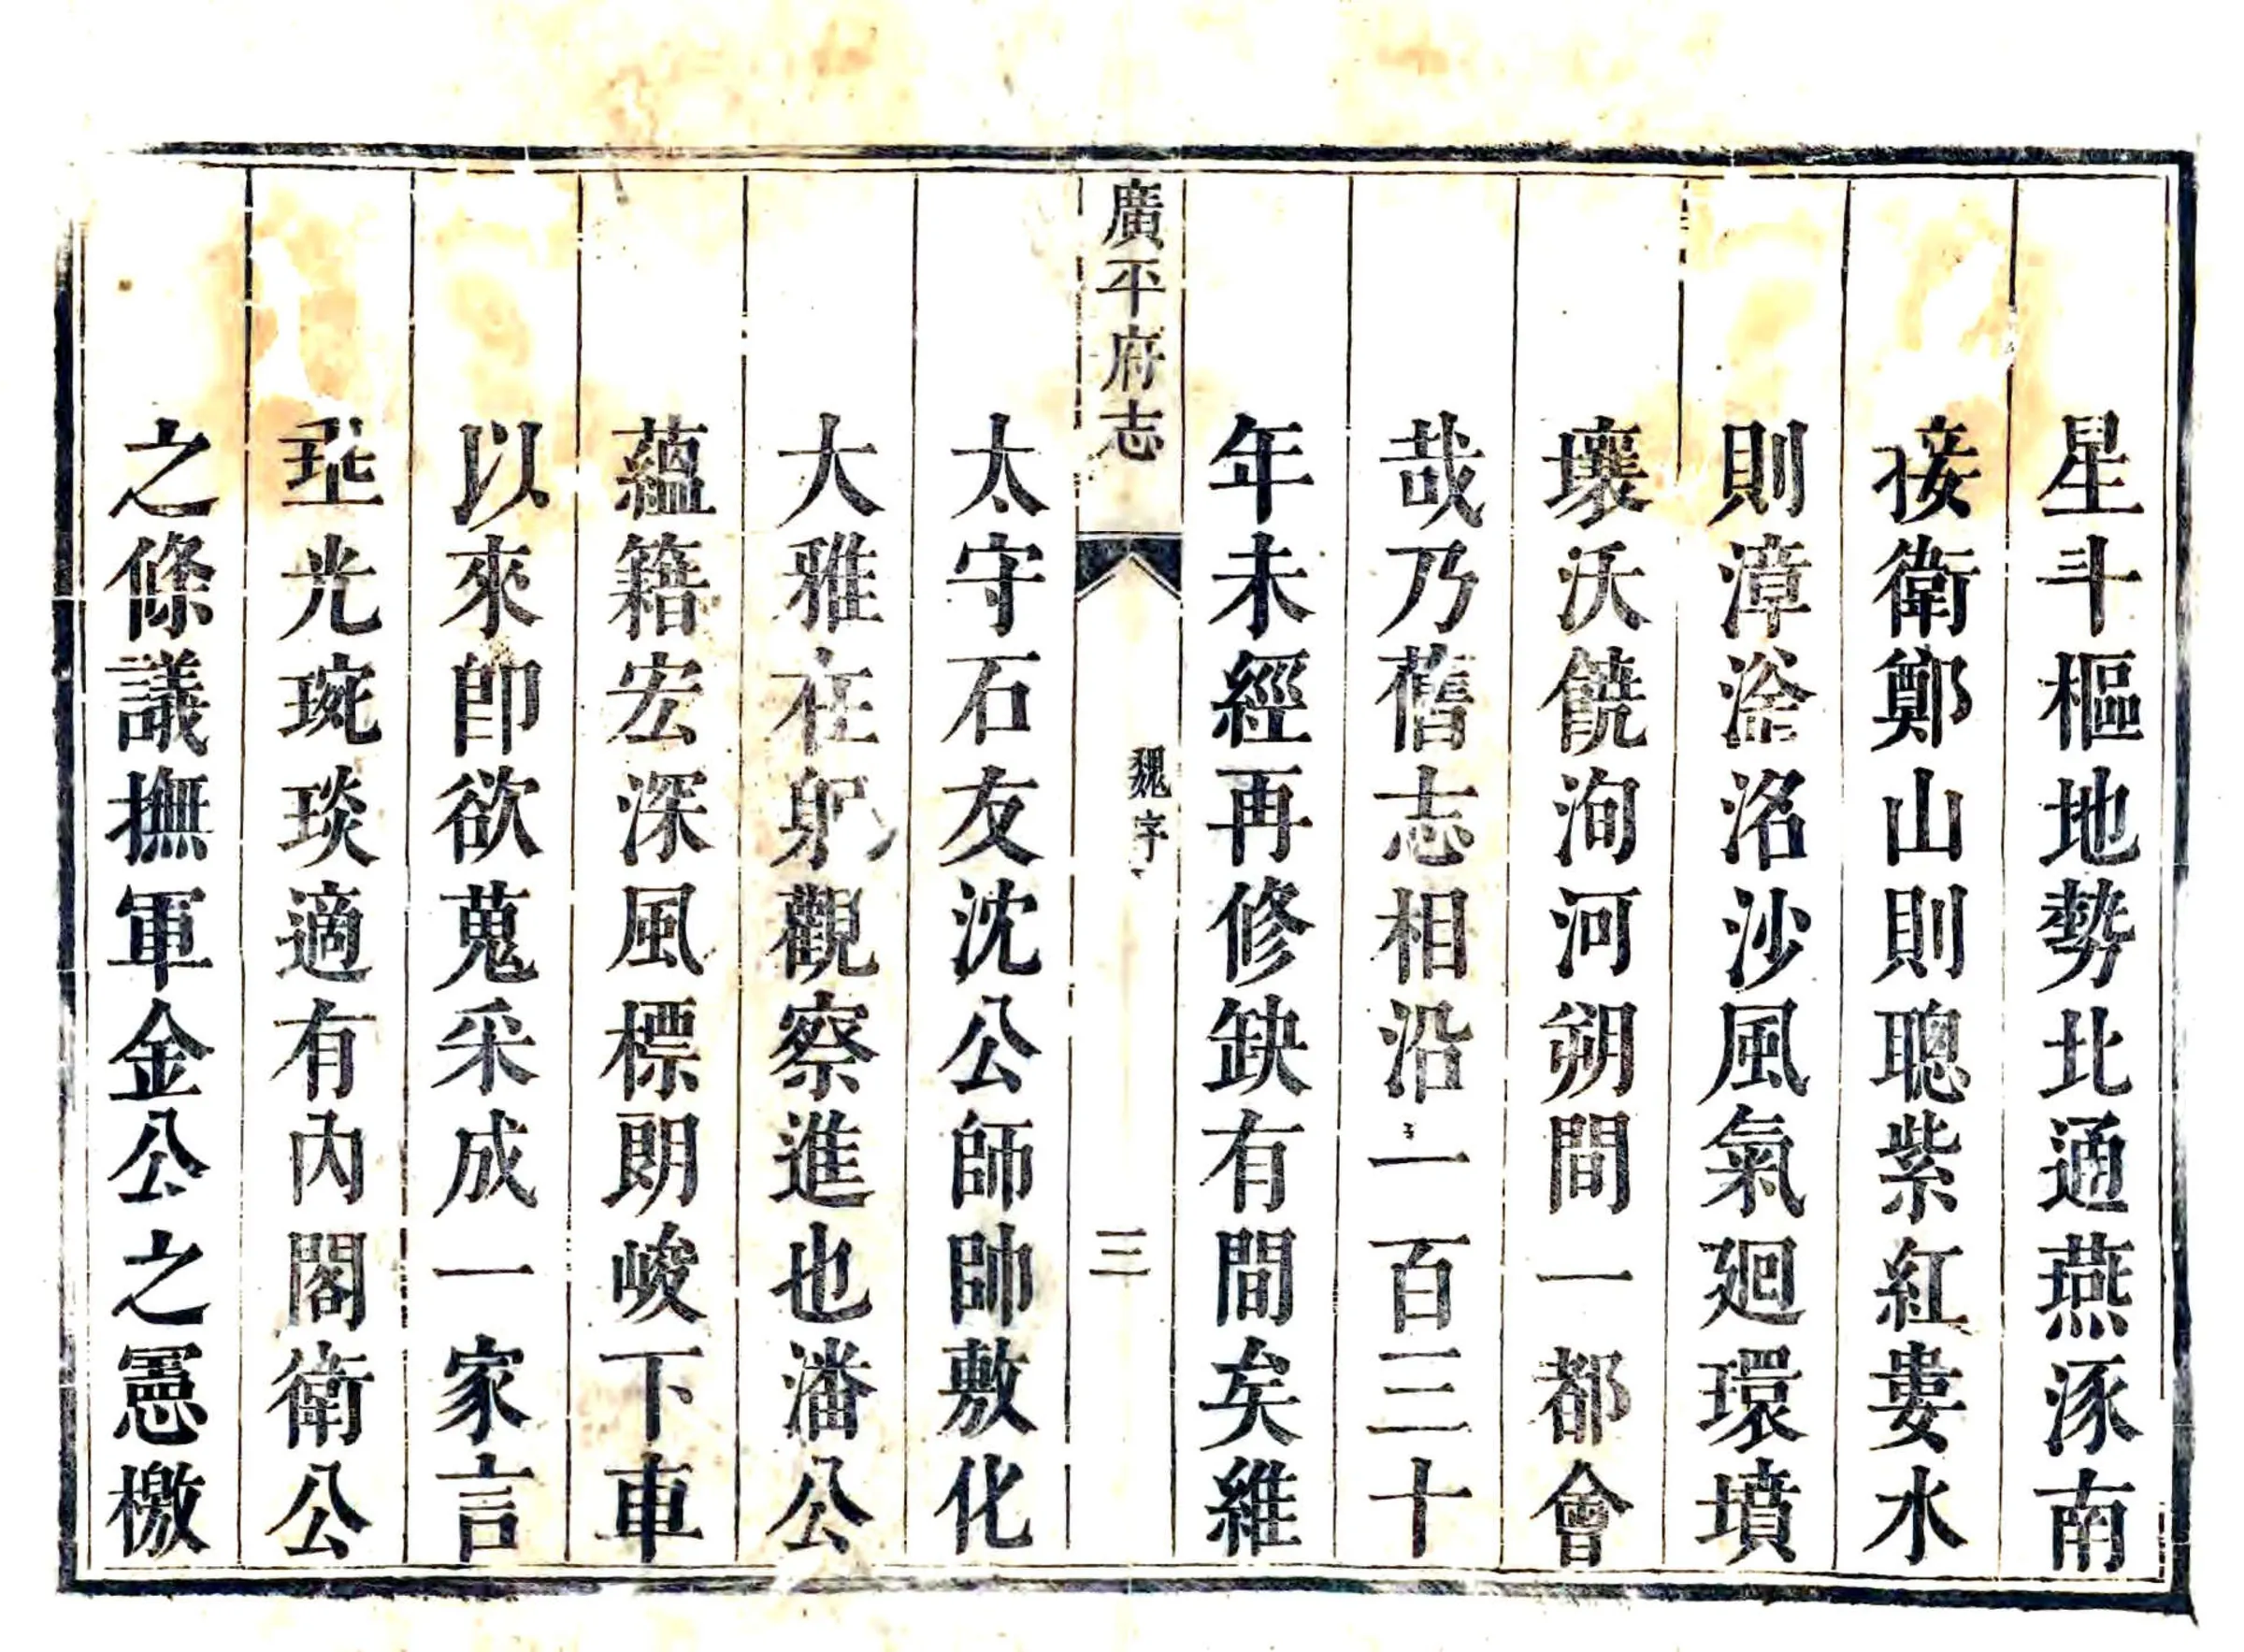 星斗樞地勢北通燕涿南
接衛鄭山則聰紫紅婁水
則漳滏洺沙風氣廻環墳
壤沃饒洵河朔間一都會
哉乃舊志相沿一百三十
年未經再修缺有間矣維
廣平府志
魏字
三
太守石友沈公師帥敷化
大雅在躬觀察進也潘公
蘊籍宏深風標朗峻下車
以來卽欲蒐采成一家言
光琬琰適有內閣衛公
之條議撫軍金公之憲檄